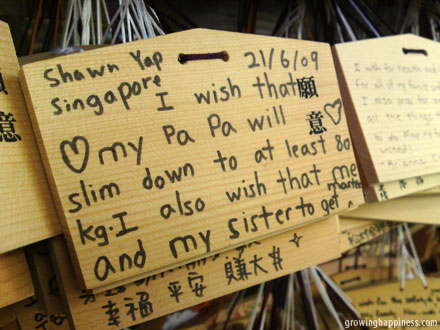 Shawn Yap 21/6/09
Singapore
I wish that 願意
♡ my Pa Pa will ♡
slim down to at least 80
kg. I also wish that me
and my sister to get
幸福 平安 賺大
意
I wish for health and
For all of my
I also pray for
all the things
growinghappiness.com